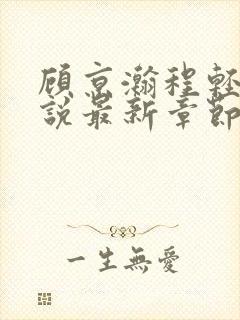 顾京瀚程輕
說最新章節
一生無愛